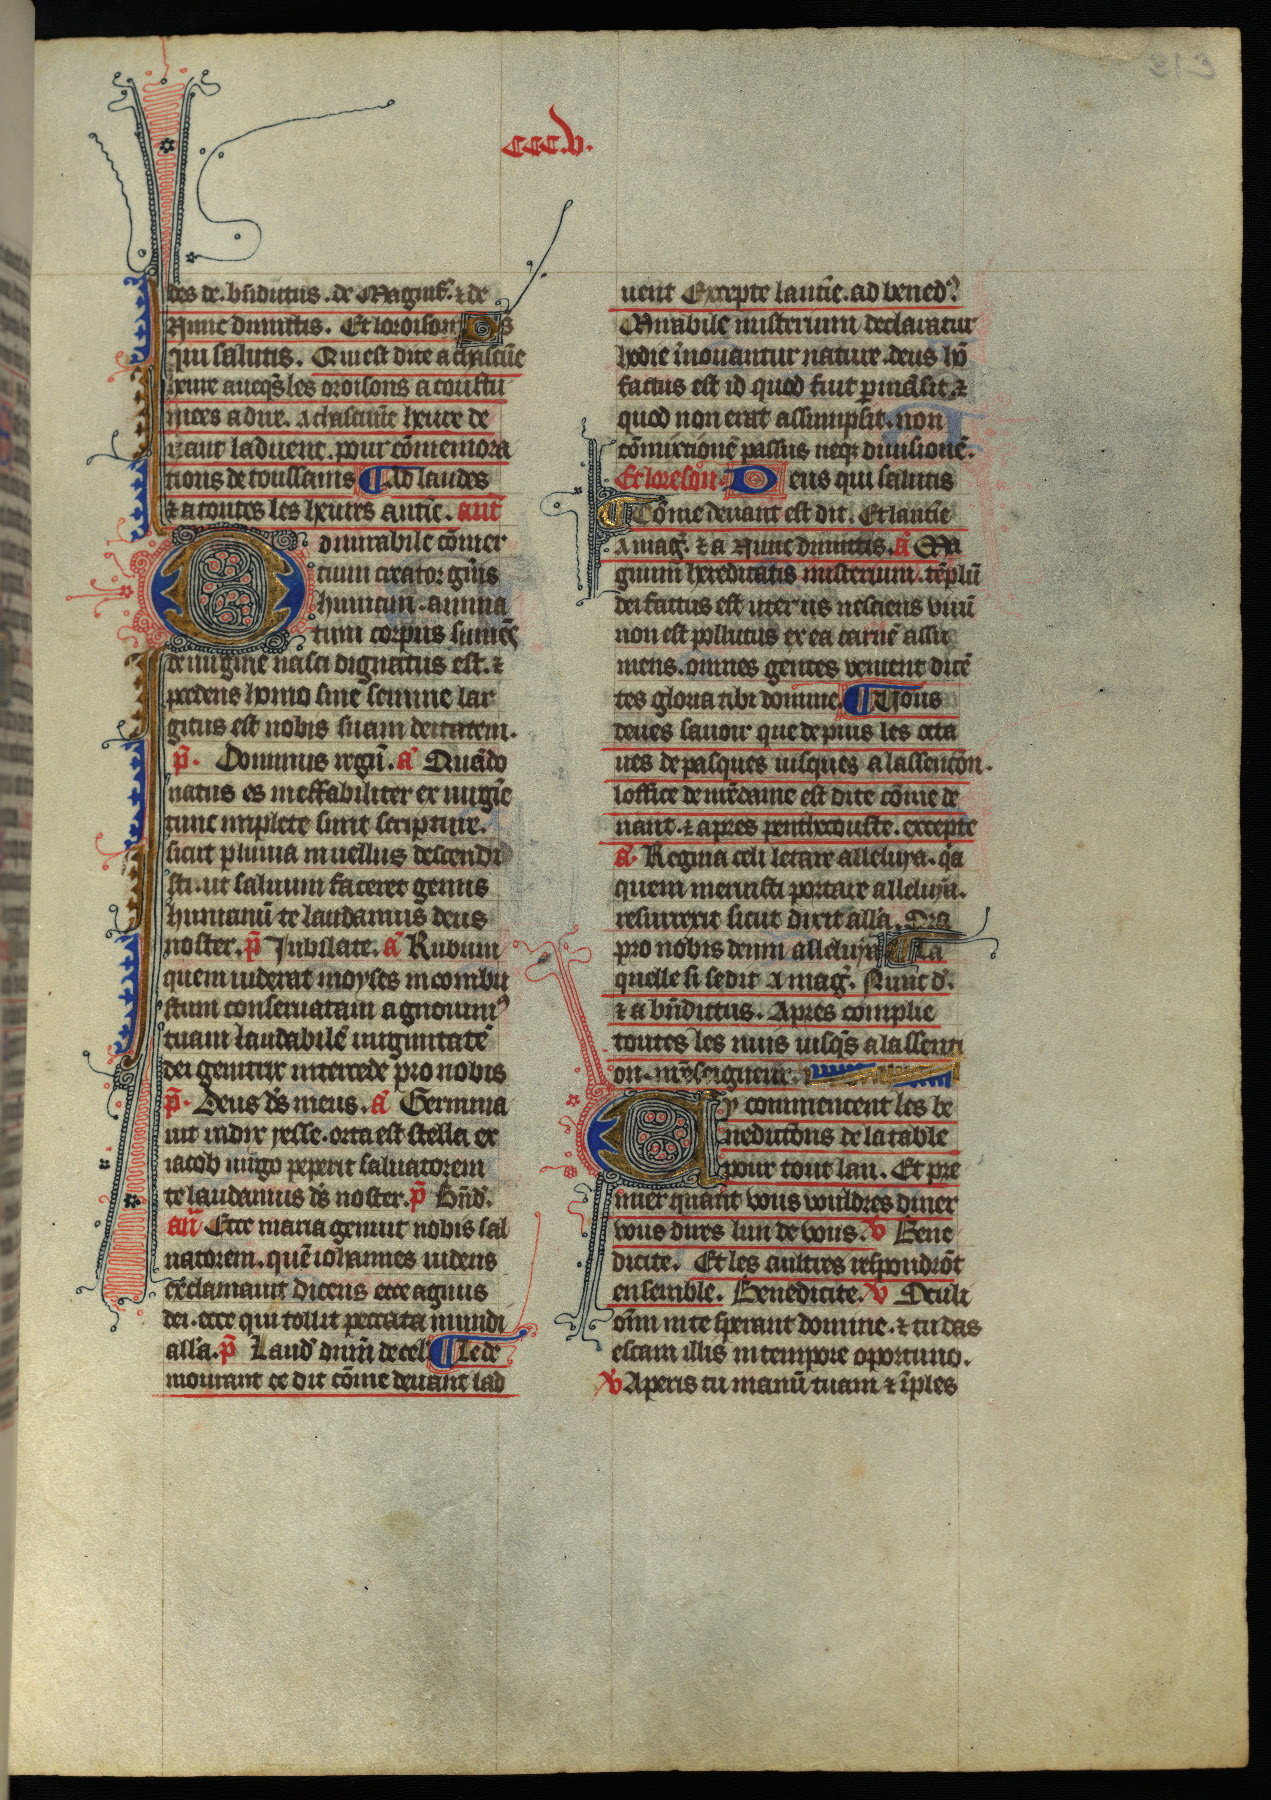 ccc.v.
des de. bñdictus. de Magnif̃. ⁊ de
Nunc dimittis. Et loroison
qui salutis. Qui est dite a chascũe
heure aueq̃s les oroisons acoustu
mees a dire. a chascũe heure de
uant laduent. pour cõmemora
tions de toussains ¶ Ad laudes
⁊ a toutes les heures antiẽ. ant̃
O dmirabile cõmer
cium creator gñis
humani. anima
tum corpus sumẽs
de uirgine nasci dignatus est. ⁊
p̃cedens homo sine semine lar
gitus est nobis suam deitatem.
p̃. Dominus regñ. ã Quãdo
natus es ineffabiliter ex uirgĩe
tunc implete sunt scripture.
sicut pluuia in uellus descendi
sti. ut saluum faceres genus
humanũ te laudamus deus
noster. p̃ Jubilate. ã Rubum
quem uiderat moyses incombu
stum conseruatam agnouimꝰ
tuam laudabilẽ uirginitatẽ
dei genitrix intercede pro nobis
p̃. Deus d̃s meus. ã Germina
uit radix yesse. orta est stella ex
iacob uirgo peperit saluatorem
te laudamus d̃s noster. p̃ Bñd̃.
añ Ecce maria genuit nobis sal
uatorem. quẽ iohannes uidens
exclamauit dicens ecce agnus
dei. ecce qui tollit peccata mundi
allã. p̃ Laud̃ dnm̃ de cel̃ ¶ Le de
mourant ce dit cõme deuant lad
uent Excepte lantiẽ. ad bened̃.
Mirabile misterium declaratur
hodie inouantur nature. deus hõ
factus est id quod fuit p̃mãsit. ⁊
quod non erat assumpsit. non
cõmixtionẽ passus neq; diuisionẽ.
Et loreson. Deus qui salutis
¶ Cõme deuant est dit. Et lantiẽ
a mag̃. ⁊ a Nunc dimittis. ã Ma
gnum hereditatis misterium. tẽplũ
dei factus est uterus nesciens uirũ
non est pollutus ex ea carnẽ assu
mens. omnes gentes uenient dicẽ
tes gloria tibi domine. ¶ Uous
deues sauoir que depuis les octa
ues de pasques iusques a lassencõn.
loffice de nr̃e dame est dite cõme de
uant. ⁊ apres penthecouste. excepte
ã. Regina celi letare alleluya. qã
quem meruisti portare alleluya.
resurrexit sicut dixit allã. Ora
pro nobis deum alleluya ¶ La
quelle si sedit a mag̃. Nunc d̃.
⁊ a bñdictus. Apres complie
toutes les nuis iusq̃s a lassenti
on. nr̃eseigneur.
Cy commencent les be
nedictõns de la table
pour tout lan. Et pre
mier quant vous vouldres diner
vous dires lun de vous. ℣ Bene
dicite. Et les aultres respondrõt
ensemble. Benedicite. ℣ Oculi
oĩm in te sperant domine. ⁊ tu das
escam illis in tempore oportuno.
℣ Aperis tu manũ tuam ⁊ ĩples